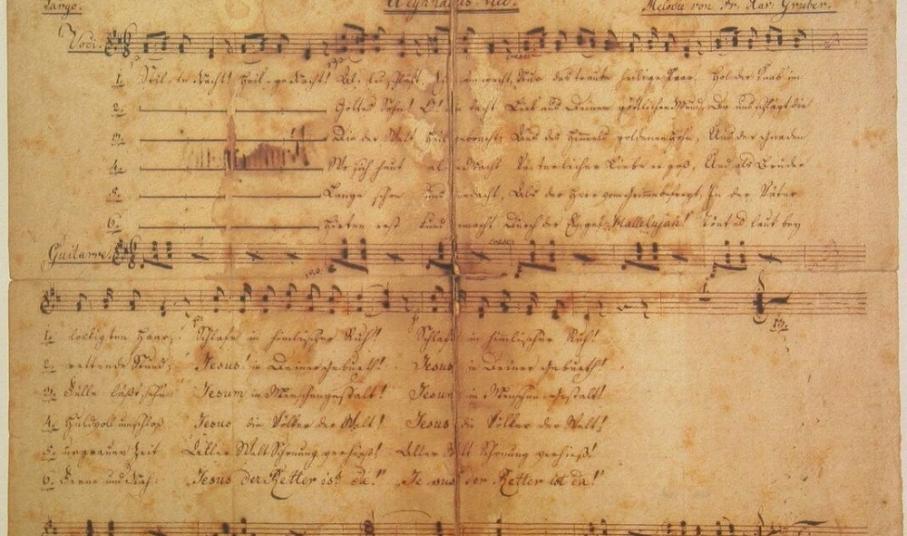 Weyhnachts-Lied.
Melodie von Fr. Xav. Gruber.
Voci.
1. Stille Nacht! Heilige Nacht! Alles schläft. wacht, Nur das traute heilige Paar. Holder Knab' im
2. Gottes Sohn! O! lacht Lieb' aus Deinem göttlichen Mund, Da uns schlägt die
3. Die der Welt Heil gebracht; Aus des Himmels goldenen Höhn, Aus der Gnaden
4. Wo sich heut alle Macht Väterlicher Liebe ergoß, Und als Bruder
5. Lange schon uns bedacht, Als der Herr vom Grimme befreyt, In der Väter
6. Hirten erst kund gemacht Durch der Engel Halleluja! Tönt es laut bey
Guitarre.
1. lockigten Haar; Schlafe in himmlischer Ruh! Schlafe in himmlischer Ruh!
2. rettende Stund; Jesus in Deiner Geburth! Jesus in Deiner Geburth!
3. Fülle läßt sehn Jesum in Menschengestalt! Jesum in Menschengestalt!
4. Huldvoll umschloß Jesus die Völker der Welt! Jesus die Völker der Welt!
5. urgrauer Zeit Aller Welt Schonung verhieß! Aller Welt Schonung verhieß!
6. Ferne und Nah: Jesus der Retter ist da! Jesus der Retter ist da!